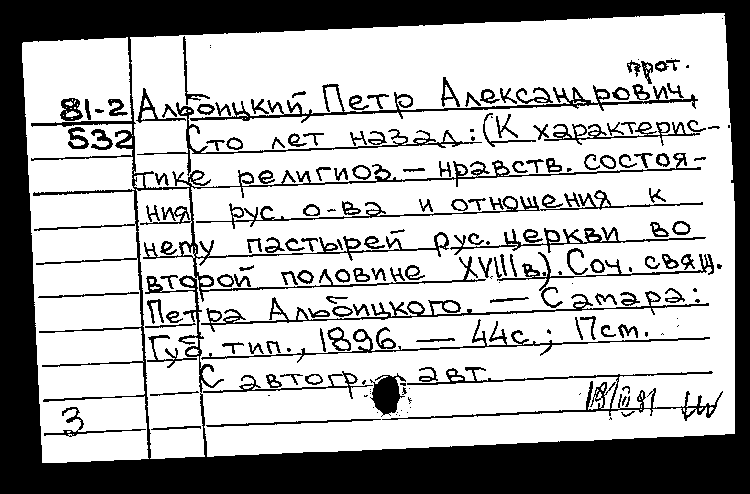 прот.
81-2 Альбицкий, Петр Александрович,
532 Сто лет назад: (К характерис-
тике религиоз. – нравств. состоя-
ния рус. о-ва и отношения к
нему пастырей рус. церкви во
второй половине XVIII в.). Соч. свящ.
Петра Альбицкого. — Самара:
Губ. тип., 1896. — 44с.; 17см.
С автогр. авт.
3 19/III 81